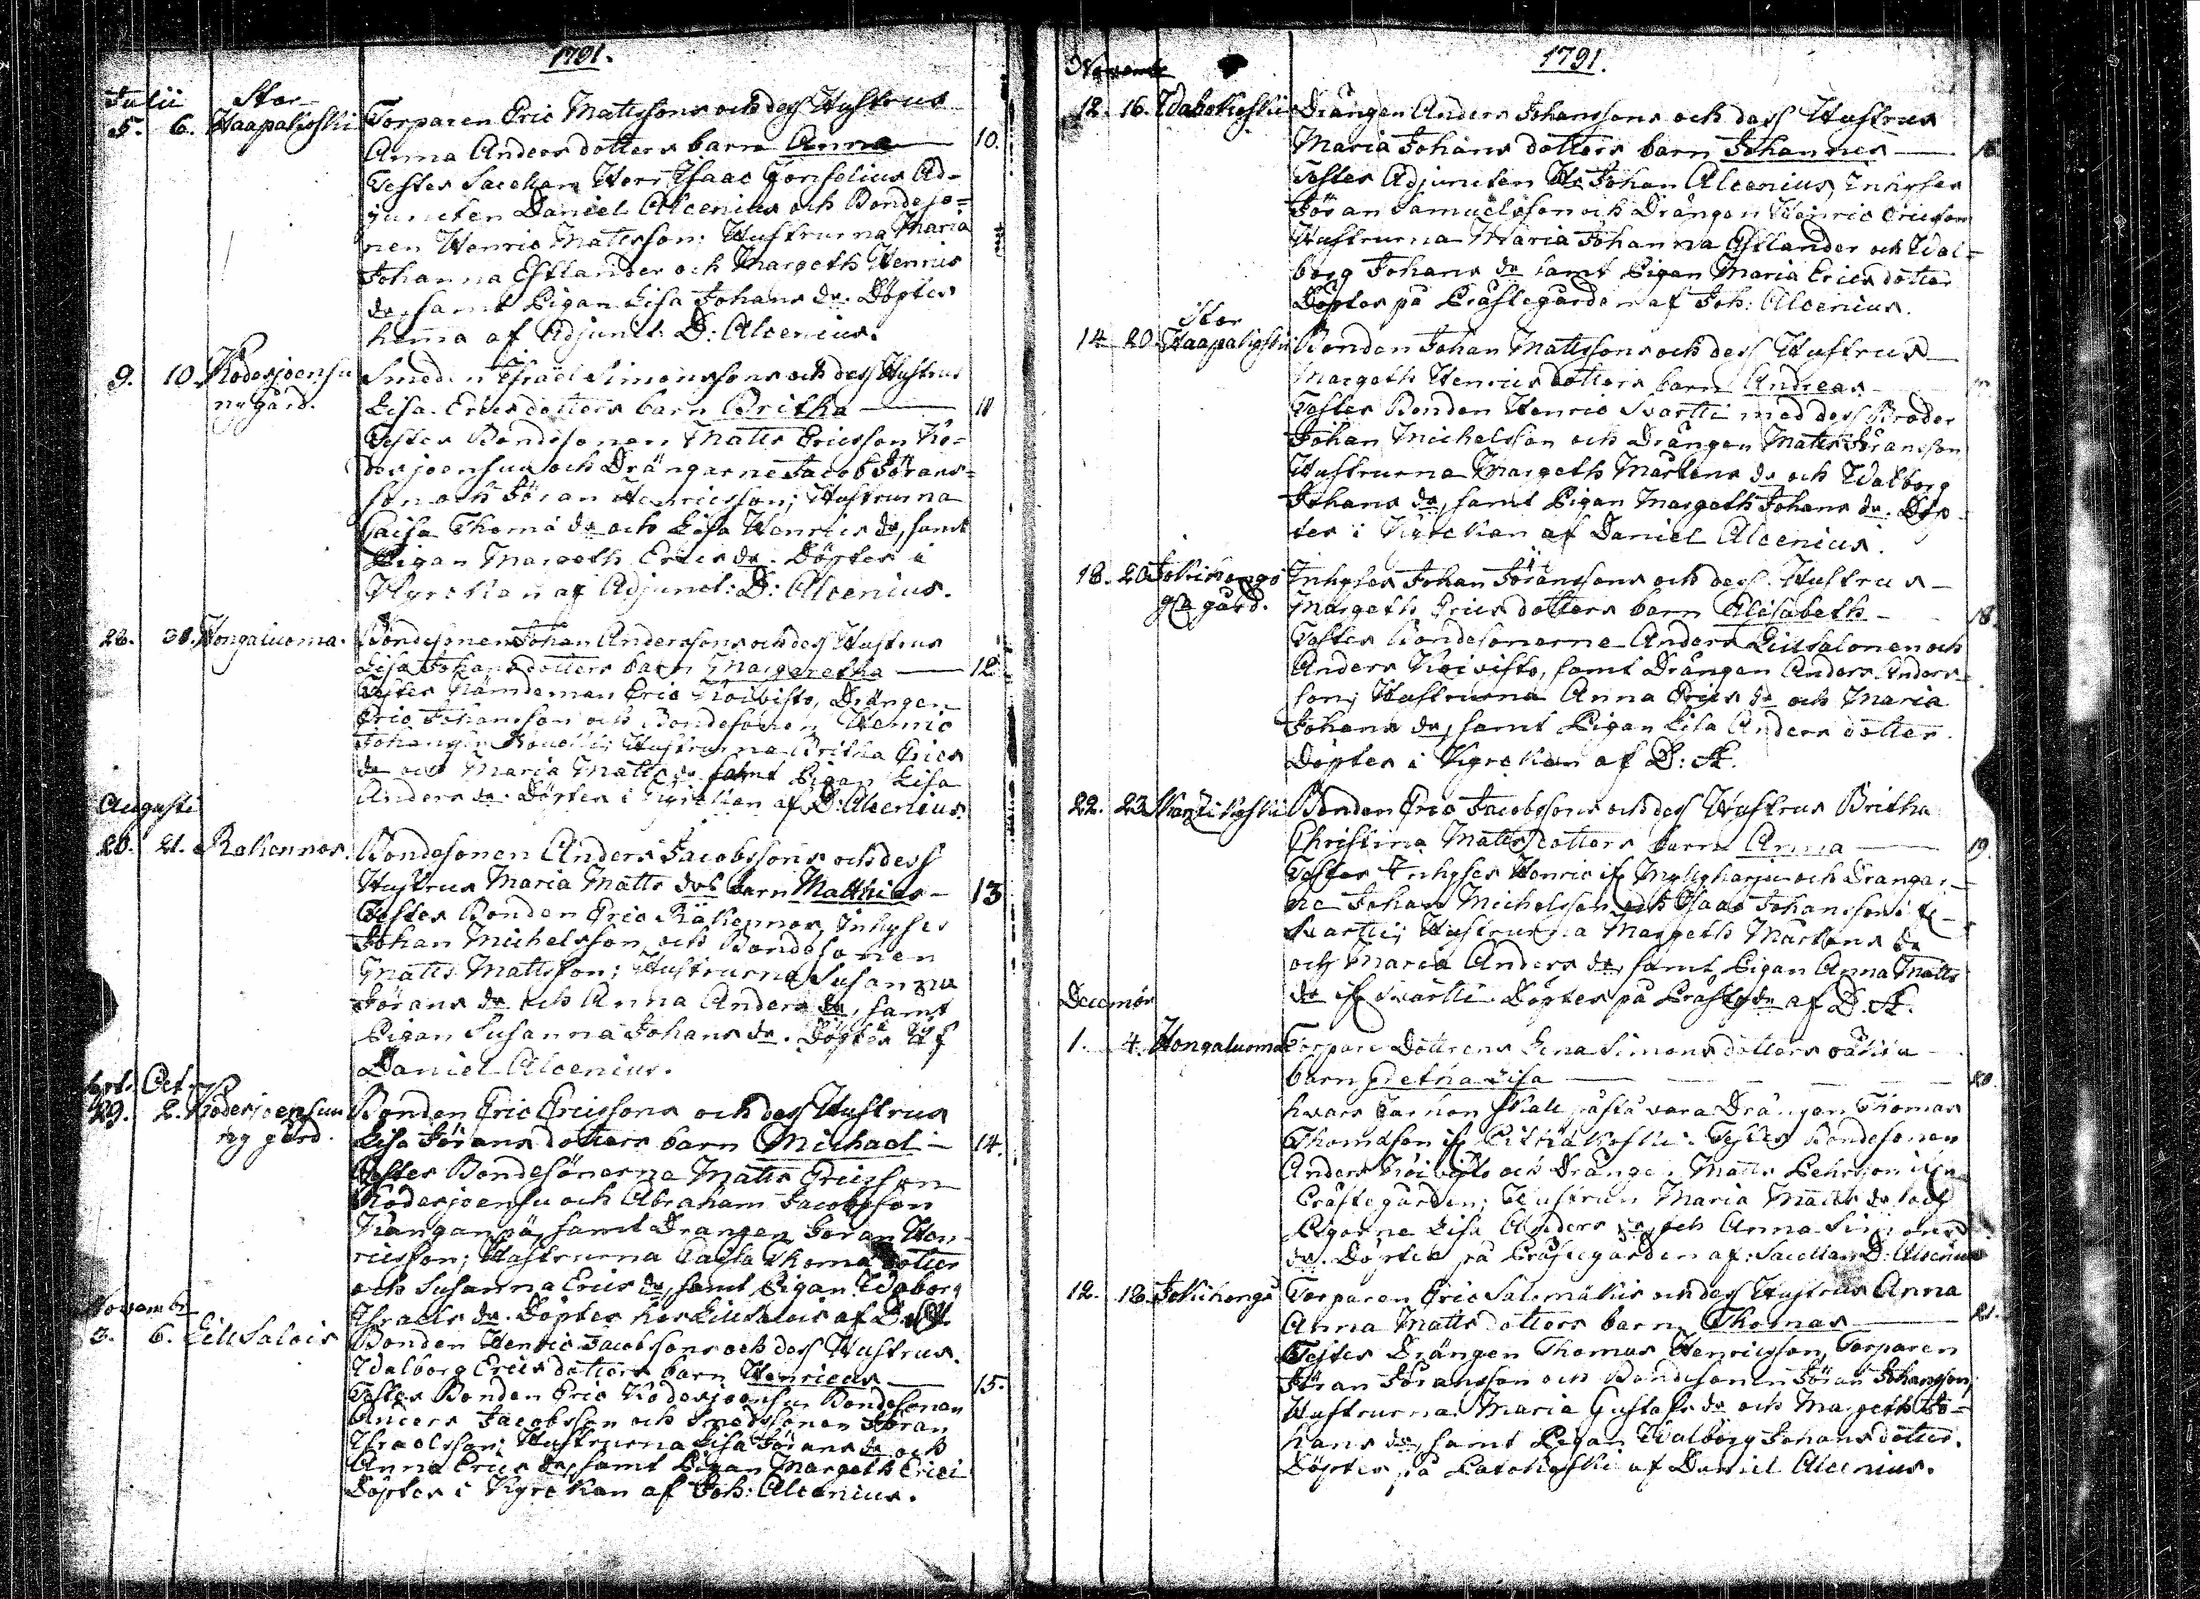 1791.
Julii
Stor-
5. 6. Haapakoski Torparen Eric Matssons och dess Hustrus
Anna Andersdotters barn Anna — 10.
Testes Sacellan Herr Isaac Gonselius Ad-
juncten Daniel Alcenius och Bondeso-
nen Henric Matsson; Hustrurna Maria
Johanna Estlander och Margeth Henrics
dr, samt Pigan Lisa Johans dr. Döptes
hemma af Adjunct: D: Alcenius.
9. 10. Kodesjoensu Smeden Israel Simonssons och dess Hustrus
ny gård. Lisa Ericsdotters barn Britha — 11
Testes Bondesonen Matts Ericsson Ko-
desjoensuu och Drängarne Jacob Jörans-
son och Jöran Henricsson; Hustrurna
Caisa Thomæ dr och Lisa Henrics dr, samt
Pigan Margeth Erics dr. Döptes i
Kyrckan af Adjunct: D: Alcenius.
23. 31. Hongaluoma. Bondesonen Johan Anderssons och dess Hustrus
Lisa Johansdotters barn Margaretha — 12.
Testes Nämdeman Eric Koivisto, Drängen
Eric Johansson och Bondesonen Henric
Johansson; Hustrurna Britha Erics
dr och Maria Matts dr samt Pigan Lisa
Anders dr. Döptes i Kyrckan af D: Alcenius.
Augusti
20. 21. Rakennos. Bondesonen Anders Jacobssons och dess
Hustrus Maria Matts drs barn Matthias — 13
Testes Bonden Eric Räkennos, Inhyses
Johan Michelsson, och Bondesonen
Matts Mattsson; Hustrurna Susanna
Jörans dr och Anna Anders dr, samt
Pigan Susanna Johans dr. Döptes af
Daniel Alcenius.
Sept. Oct.
29. 2. Kodesjoensuu Bonden Eric Ericssons och dess Hustrus
ny gård. Lisa Jörans dotters barn Michael — 14.
Testes Bondesönerna Matts Ericsson
Kodesjoensu och Abraham Jacobsson
Kanganpä, samt Drängen Jöran Hen-
ricsson; Hustrurna Caisa Thomæ dotter
och Susanna Erics dr, samt Pigan Waborg
Israels dr. Döptes hos Lillsalois af D: A.
Novembr
3. 6. Lill Salois Bonden Henric Jacobssons och dess Hustrus
Walborg Ericsdotters barn Henricus — 15.
Testes Bonden Eric Kodesjoensu Bondesonen
Anders Jacobsson och Smedssonen Jöran
Israelsson; Hustrurna Lisa Jörans dr och
Anna Erics dr, samt Pigan Margeth Erici
Döptes i Kyrckan af Joh: Alcenius.
1791.
Novembr
12. 16. Wahokoski Drängen Anders Johanssons och dess Hustrus
Maria Johans dotters barn Johannes — 16
Testes Adjuncten Hr Johan Alcenius, Inhyses
Jöran Samuelsson och Drängen Henric Ericsson
Hustrurna Maria Johanna Estlander och Wal-
borg Johans dr samt Pigan Maria Erics dotter
Döptes på Prästegården af Joh: Alcenius.
Stor
14. 20. Haapakoski Bonden Johan Matssons och dess Hustrus
Margeth Henricsdotters barn Andreas
Testes Bonden Henric Svartti med dess Broder
Johan Michelsson och Drängen Matts Jöransson
Hustrurna Margeth Mårtens dr och Walborg
Johans dr, samt Pigan Margeth Johans dr. Döp-
tes i Kyrckan af Daniel Alcenius.
18. 20. Jokihongo Inhyses Johan Jöranssons och dess Hustrus
gla gård. Margeth Erics dotters barn Elisabeth — 18.
Testes Bondesönerne Anders Lillsalonen och
Anders Koivisto, samt Drängen Anders Anders-
son; Hustrurna Anna Erics dr och Maria
Johans dr, samt Pigan Lisa Anders dotter.
Döptes i Kyrckan af D: A.
22. 23. Bonden Eric Jacobssons och dess Hustrus Britha
Christina Matts dotters barn Anna — 19.
Testes Inhyses Henric if Myllyharju och Drängar-
ne Johan Michelsson och Isaac Johansson
Svartti; Hustrurna Margeth Mårtens dr
och Maria Anders dr, samt Pigan Anna Matts
dr if Svartti. Döptes på Prästegdn af D. A.
Decembr
1. 4. Hongaluoma Torpare Dottrens Lena Simons dotters oäkta
barn Gretha Lisa — 20.
hvars Far hon skall påstå vara Drängen Thomas
Thomasson if Testes Bondesonen
Anders Koivisto och Drängen Matts Pehrsson
Prästegården; Hustrun Maria Matts dr och
Pigorne Lisa Anders dr, och Anna Simons
dr. Döptes på Prästegården af: Sacellan D: Alcenius
12. 18. Jokihongo Torparen Eric Salomäkis och dess Hustrus Anna
Anna Matts dotters barn Thomas — 21.
Testes Drängen Thomas Henricsson, Torparen
Jöran Jöransson och Bondesonen Jöran Johansson,
Hustrurna Maria Gustafs dr och Margeth Jo-
hans dr, samt Pigan Walborg Johans dotter.
Döptes på Latokoski af Daniel Alcenius.